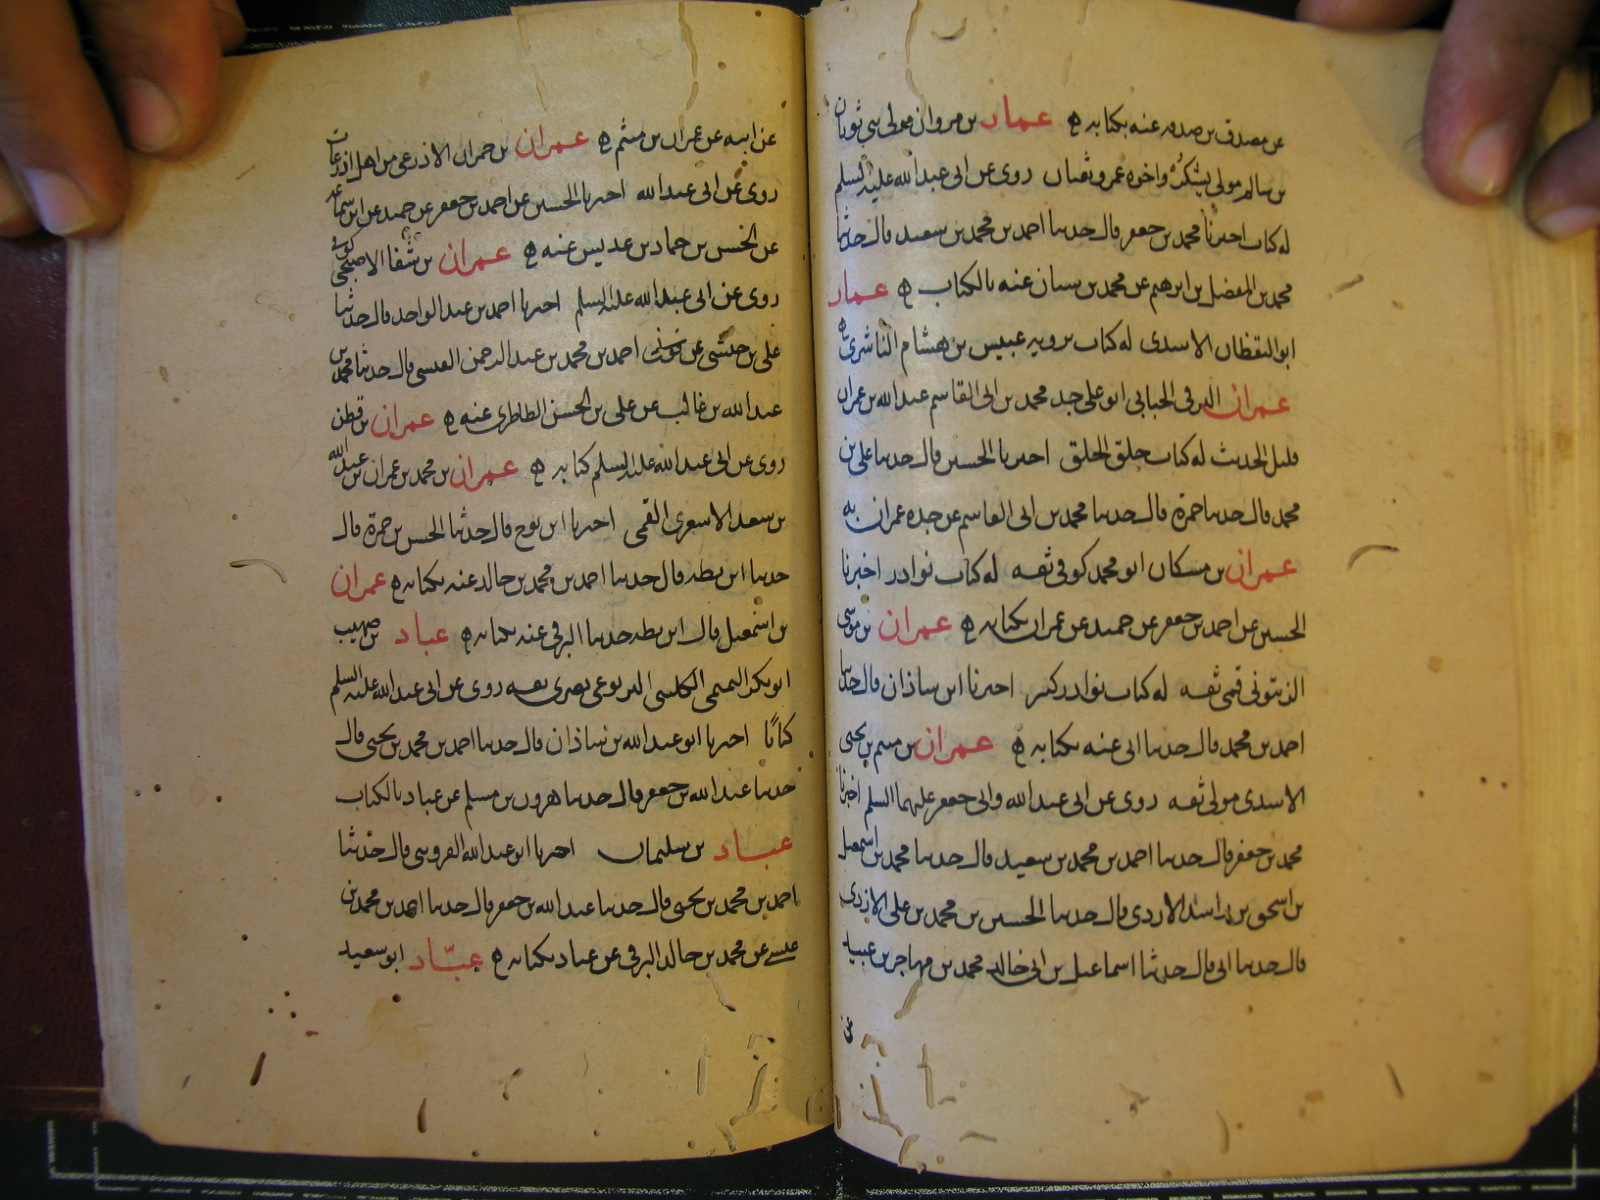 عن مصدق بن صدقه عنه بكتابه ه عمار بن مروان مولى بني ثوبان
بن سالم مولى يشكر واخوه عمرو ثقتان روى عن ابى عبد الله عليه السلم
له كتاب اخبرنا محمد بن جعفر قال حدثنا احمد بن محمد بن سعيد قال حدثنا
محمد بن المفضل بن ابرهيم عن محمد بن سنان عنه بالكتاب ه عمار
ابو اليقظان الاسدى له كتاب يرويه عبيس بن هشام الناشرى ه
عمران البرقى الجبابى ابو على جد محمد بن ابى القاسم عبد الله بن عمران
قليل الحديث له كتاب خلق الخلق اخبرنا الحسين قال حدثنا على بن
محمد قال حدثنا حمزة قال حدثنا محمد بن ابى القاسم عن جده عمران به
عمران بن مسكان ابو محمد كوفى ثقه له كتاب نوادر اخبرنا
الحسين عن احمد بن جعفر عن حميد عن عمران بكتابه ه عمران بن موسى
الزيتونى قمى ثقه له كتاب نوادر كبير اخبرنا ابن شاذان قال حدثنا
احمد بن محمد قال حدثنا ابى عنه بكتابه ه عمران بن ميثم بن يحيى
الاسدى مولى ثقه روى عن ابى عبد الله وابى جعفر عليهما السلم اخبرنا
محمد بن جعفر قال حدثنا احمد بن محمد بن سعيد قال حدثنا محمد بن اسمعيل
بن اسحق بن راشد الازدى قال حدثنا الحسين بن محمد بن على الازدى
قال حدثنا ابى قال حدثنا اسماعيل بن ابى خالد محمد بن مهاجر بن عبيد
عن
عن ابيه عن عمران بن ميثم ه عمران بن حمران الاذرعى من اهل اذرعات
روى عن ابى عبد الله اخبرنا الحسين عن احمد بن جعفر عن حميد عن ابن سماعه
عن الحسن بن حماد بن عديس عنه ه عمران بن شفا الاصبحى كوفى
روى عن ابى عبد الله عليه السلم اخبرنا احمد بن عبد الواحد قال حدثنا
على بن حبشى بن قونى احمد بن محمد بن عبد الرحمن القبسى قال حدثنا محمد بن
عبد الله بن غالب عن على بن الحسن الطاطرى عنه ه عمران بن قطن
روى عن ابى عبد الله عليه السلم كتابه ه عمران بن محمد بن عمران بن عبد الله
بن سعد الاشعرى القمى اخبرنا ابن نوح قال حدثنا الحسن بن حمزة قال
حدثنا ابن بطه قال حدثنا احمد بن محمد بن خالد عنه بكتابه ه عمران
بن اسمعيل قال ابن بطه حدثنا البرقى عنه بكتابه ه عباد بن صهيب
ابو بكر التميمى الكلبى اليربوعى بصرى ثقه روى عن ابى عبد الله عليه السلم
كتابًا اخبرنا ابو عبد الله بن شاذان قال حدثنا احمد بن محمد بن يحيى قال
حدثنا عبد الله بن جعفر قال حدثنا هرون بن مسلم عن عباد بالكتاب
عباد بن سليمان اخبرنا ابو عبد الله القزوينى قال حدثنا
احمد بن محمد بن يحيى قال حدثنا عبد الله بن جعفر قال حدثنا احمد بن محمد بن
عيسى عن محمد بن خالد البرقى عن عباد بكتابه ه عبّاد ابو سعيد